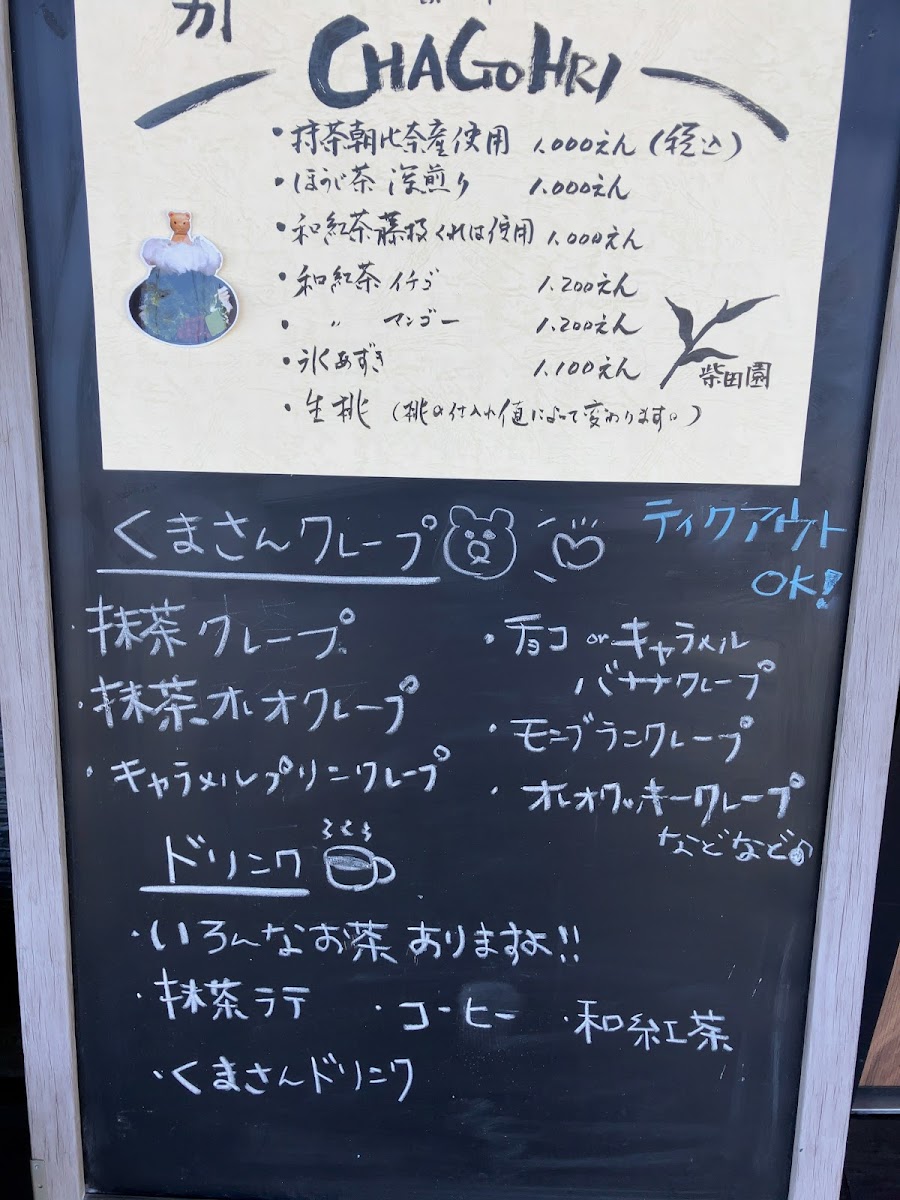 CHAGOHRI
・抹茶朝比奈産使用 1.000えん(税込)
・ほうじ茶 深煎り 1.000えん
・和紅茶藤枝くれは使用 1.000えん
・和紅茶 イチゴ 1.200えん
・ 〃 マンゴー 1.200えん
・氷あずき 1.100えん
・生桃 (桃の仕入れ値によって変わります。)
柴田園
くまさんクレープ
ティクアウト
OK!
・抹茶クレープ
・抹茶オレオクレープ
・キャラメルプリンクレープ
・チョコ or キャラメル
バナナクレープ
・モンブランクレープ
・オレオクッキークレープ
などなど♪
ドリンク
・いろんなお茶ありますよ!!
・抹茶ラテ ・コーヒー ・和紅茶
・くまさんドリンク